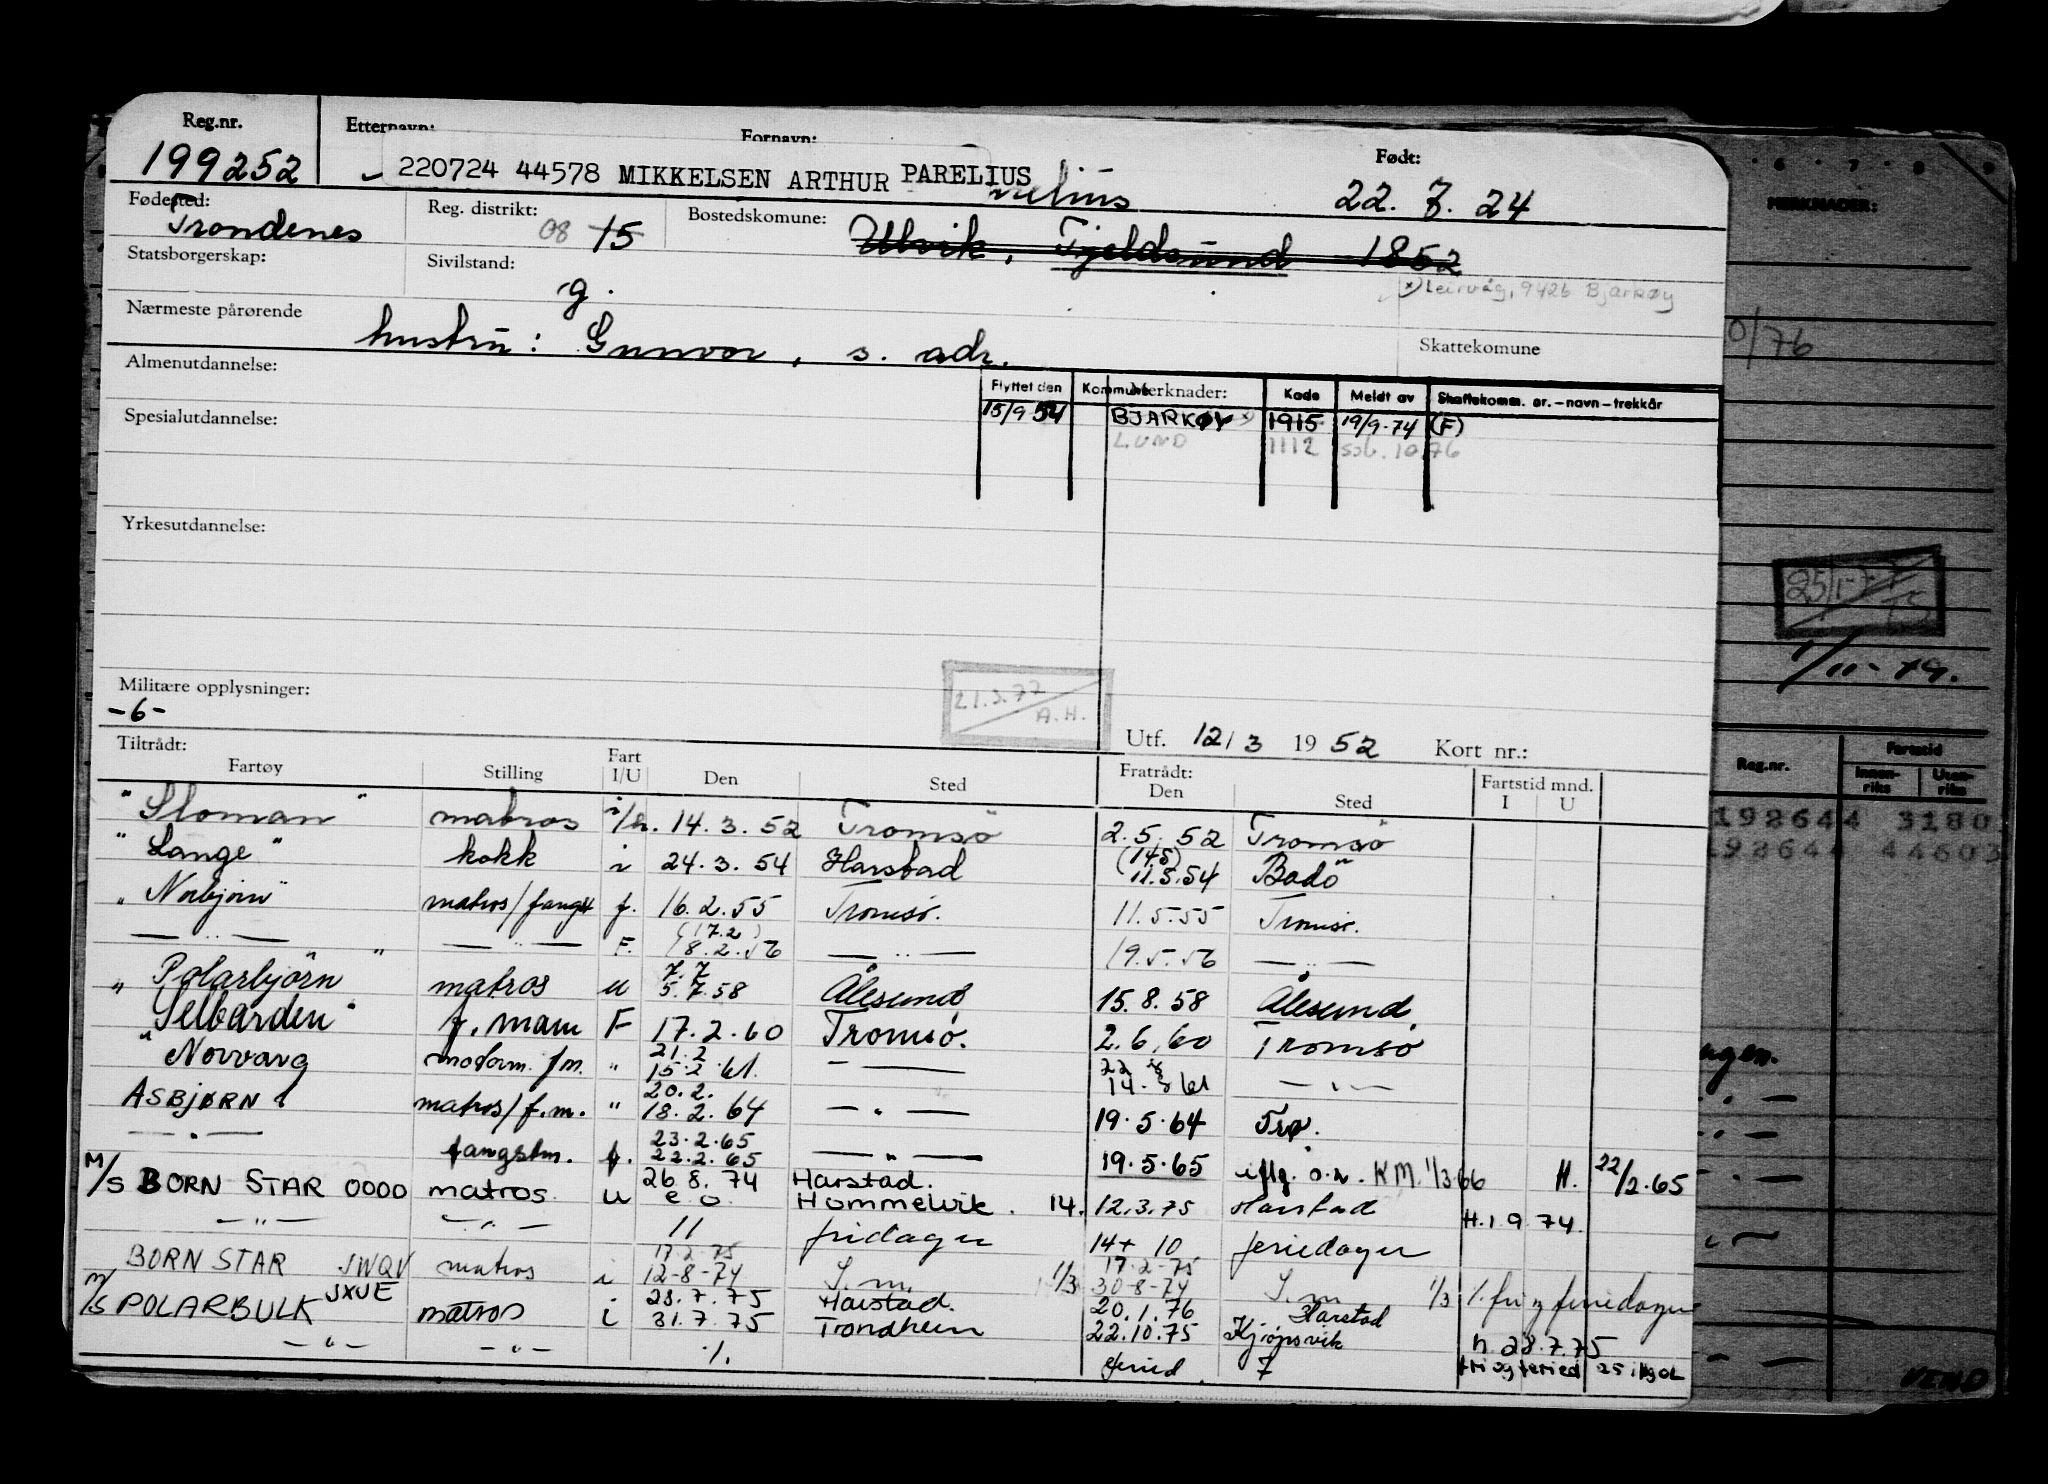 Reg.nr. Etternavn: Fornavn: Født:
199252 220724 44578 MIKKELSEN ARTHUR PARELIUS 22. 7. 24
Fødested: Reg. distrikt: Bostedskomune:
Trondenes 08 15 Ulvik, Fjeldsund 1852
Statsborgerskap: Sivilstand:
g. x) Leirvåg, 9426 Bjarkøy
Nærmeste pårørende
hustru: Gunvor, s. adr. Skattekomune
Almenutdannelse:
Flyttet den Kommune Merknader: Kode Meldt av Skattekomm. nr. - navn - trekkår
Spesialutdannelse:
15/9 54 BJARKØY x) 1915 19/9-74 (F)
LUND 1112 ssb. 10.76
0/76
Yrkesutdannelse:
MERKNADER:
1/11-74.
Militære opplysninger:
-6-
21.3.77 A.H.
Utf. 12/3 1952 Kort nr.:
Tiltrådt: Fratrådt:
Fartøy Stilling Fart I/U Den Sted Den Sted Fartstid mnd. I U
Reg.nr. Fartstid Innenriks Utenriks
"Sloman" matros 14.3.52 Tromsö 2.5.52 Tromsö
192644 3180
"Lange" kokk i 24.3.54 Harstad (14.5) 11.5.54 Bodö
192644 44603
"Norbjørn" matros/fangst f. 16.2.55 Tromsø. 11.5.55 Tromsø.
— " — — " — F. (17.2) 18.2.56 — " — 19.5.56 — " —
"Polarbjörn" matros u 7.7 5.7.58 Ålesund 15.8.58 Ålesund
"Selbarden" f. mann F 17.2.60 Tromsø. 2.6.60 Tromsø
"Norvarg motorm. fm. " 21.2 15.2.61. — 22 14. 61 — " —
ASBJØRN matros/f.m. " 20.2. 18.2.64 — " — 19.5.64 Trø.
— " — fangstm. f. 23.2.65 22.2.65 — " — 19.5.65 iflg. o.r. KM. 1/3 66 H. 22/2.65
M/S BORN STAR 0000 matros u 26.8.74 Harstad.
e o Hommelvik. 14. 12.3.75 Harstad H. 1.9.74.
— " — — " — 11 fridager 14 + 10 feriedager
BORN STAR JWQV matros i 17.2.75 12-8-74 S.m. 1/3 17.2.75 30-8-74 S.m. 1/3 %. fri og feriedager
M/S POLARBULK JXUE matros i 28.7.75 Harstad. 20.1.76 Harstad
31.7.75 Trondheim 22.10.75 Kjøpsvik h 28.7.75
— " — — " — %. feried. 7 fri og feried 25
VEND